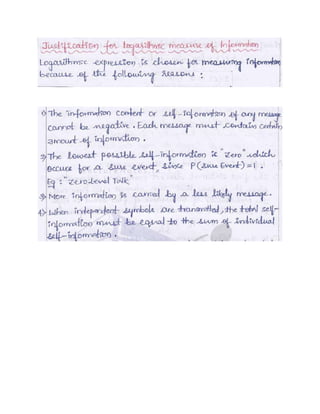 Justification for logarithmic measure of Information
Logarithmic expression is chosen for measuring information
because of the following reasons :
1) The information content or self-information of any message
cannot be negative. Each message must contain certain
amount of information.
2) The lowest possible self-information is "zero" which
occurs for a sure event, since P(Sure Event) = 1.
Eg : "Zero-level Talk"
3) More information is carried by a less likely message.
4) When independent symbols are transmitted, the total self-
information must be equal to the sum of individual
self-information.